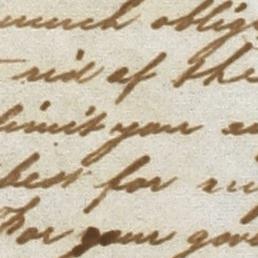 much oblig
rid of the
limits your
best for
For your gove